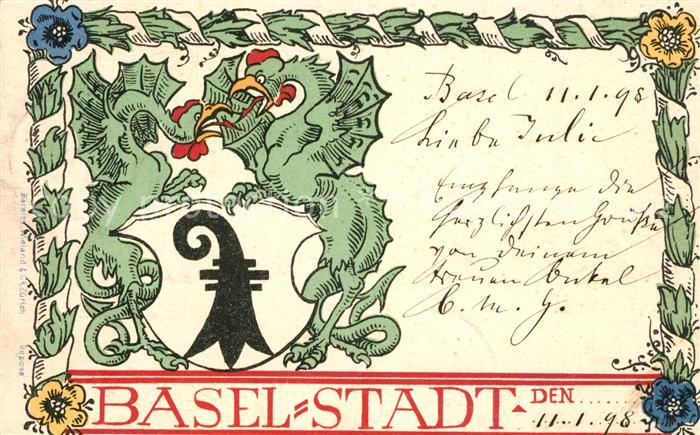 Basel 11.1.98
Liebe Julie
Empfange die
herzlichsten Grüße
von deinem
treuen Onkel
C. M. G.
BASEL=STADT·DEN........
11.1.98
Wieland & Cº Zürich Déposé